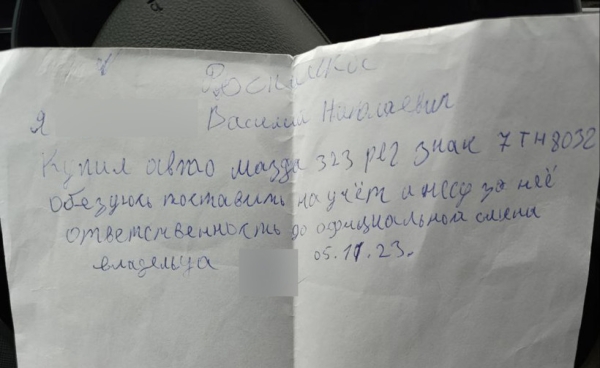 Я Василий Николаевич
Купил авто мазда 323 рег знак 7ТН8032
обезуюсь поставить на учёт и несу за неё
ответственность до официальной смена
владельца 05.11.23.